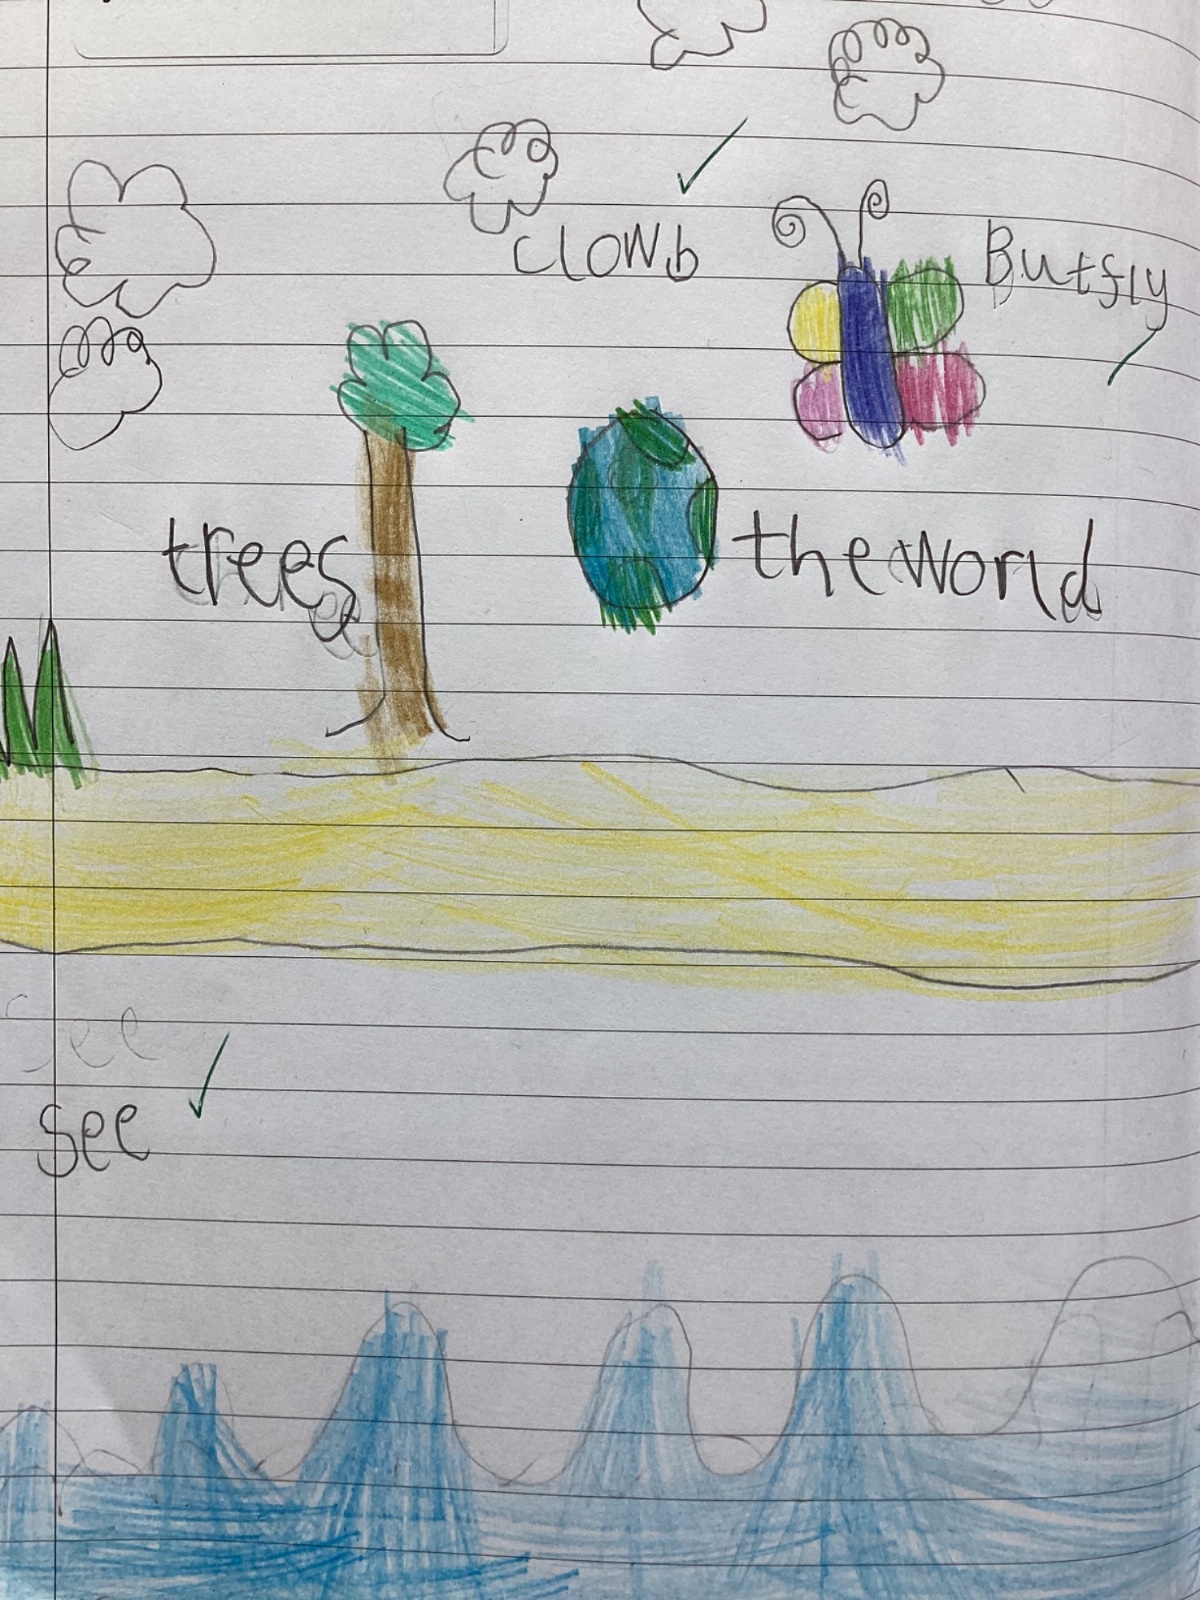 clowb
Butfly
trees
the world
see
see